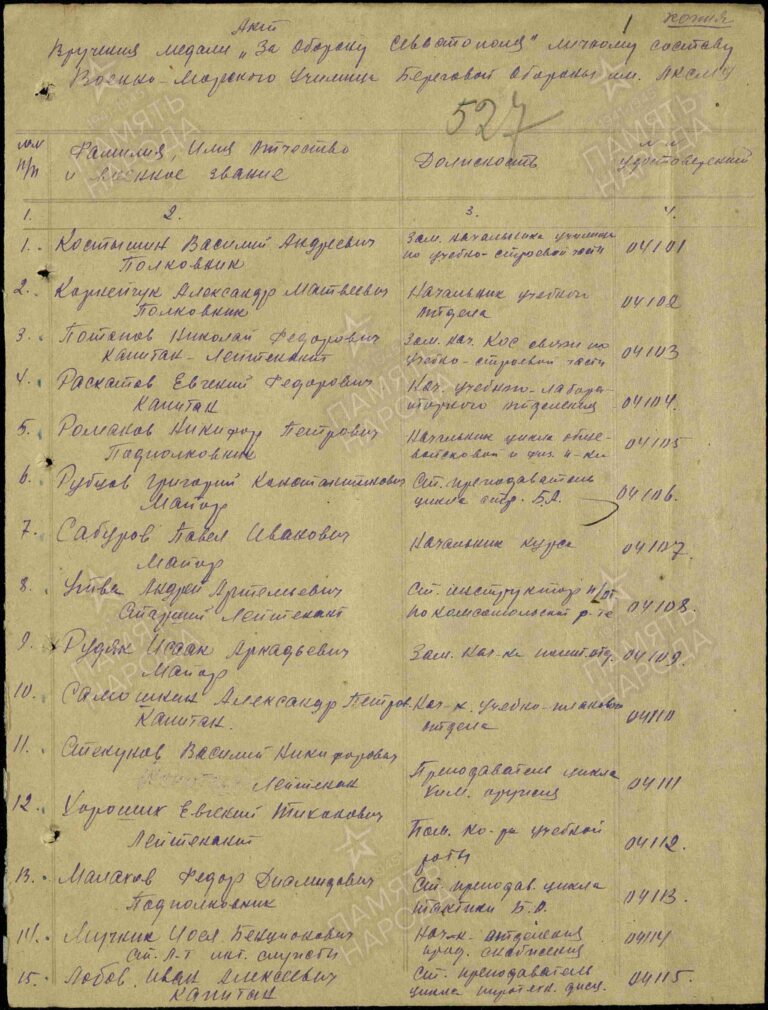 копия
Акт
Вручения медали „За Оборону Севастополя" личному составу
Военно-Морского Училища Береговой Обороны им. ЛКСМУ
527
№№ п/п
Фамилия, Имя Отчество и Военное звание
Должность
№ № удостоверений
1. 2. 3. 4.
1. Костышин Василий Андреевич Зам. начальника училища
Полковник по учебно-строевой части 04101
2. Корнейчук Александр Матвеевич Начальник учебного
Полковник отдела 04102
3. Потапов Николай Федорович Зам. нач. Кос связи по
Капитан-Лейтенант учебно-строевой части 04103
4. Расхатов Евгений Федорович Нач. учебного-лабора-
Капитан торного отделения 04104.
5. Романов Никифор Петрович Начальник цикла обще-
Подполковник войсковой и физ. п-ки 04105
6. Рубцов Григорий Константинович Ст. преподаватель
Майор цикла стр. Б.А. 04106.
7. Сабуров Павел Иванович Начальник курса 04107
Майор
8. Андрей Артемьевич Ст. инструктор п/от
Старший Лейтенант по комсомольской р-те 04108.
9. Рудяк Исаак Аркадьевич Зам. Нач-ка полит.отд. 04109.
Майор
10. Самошкин Александр Петров. Нач-к. Учебно-планового
Капитан. отдела 04110
11. Стекунов Василий Никифорович
Лейтенан Преподаватель цикла
хим. оружия 04111
12. Хороших Евгений Тихонович
Лейтенант Пом. ко-ра учебной
роты 04112.
13. Малахов Федор Диамидович Ст. преподав. цикла
Подполковник тактики Б.А. 04113.
14. Мучник Иосл Бенционович Нач-к. отделения
Ст. Л-т инт. службы прод. снабжения 04114
15. Лобов Иван Алексеевич Ст. преподаватель
Капитан цикла пиротехн. дисц. 04115.
ПАМЯТЬ НАРОДА
ПАМЯТЬ НАРОДА
ПАМЯТЬ НАРОДА
ПАМЯТЬ НАРОДА
ПАМЯТЬ НАРОДА
ПАМЯТЬ НАРОДА